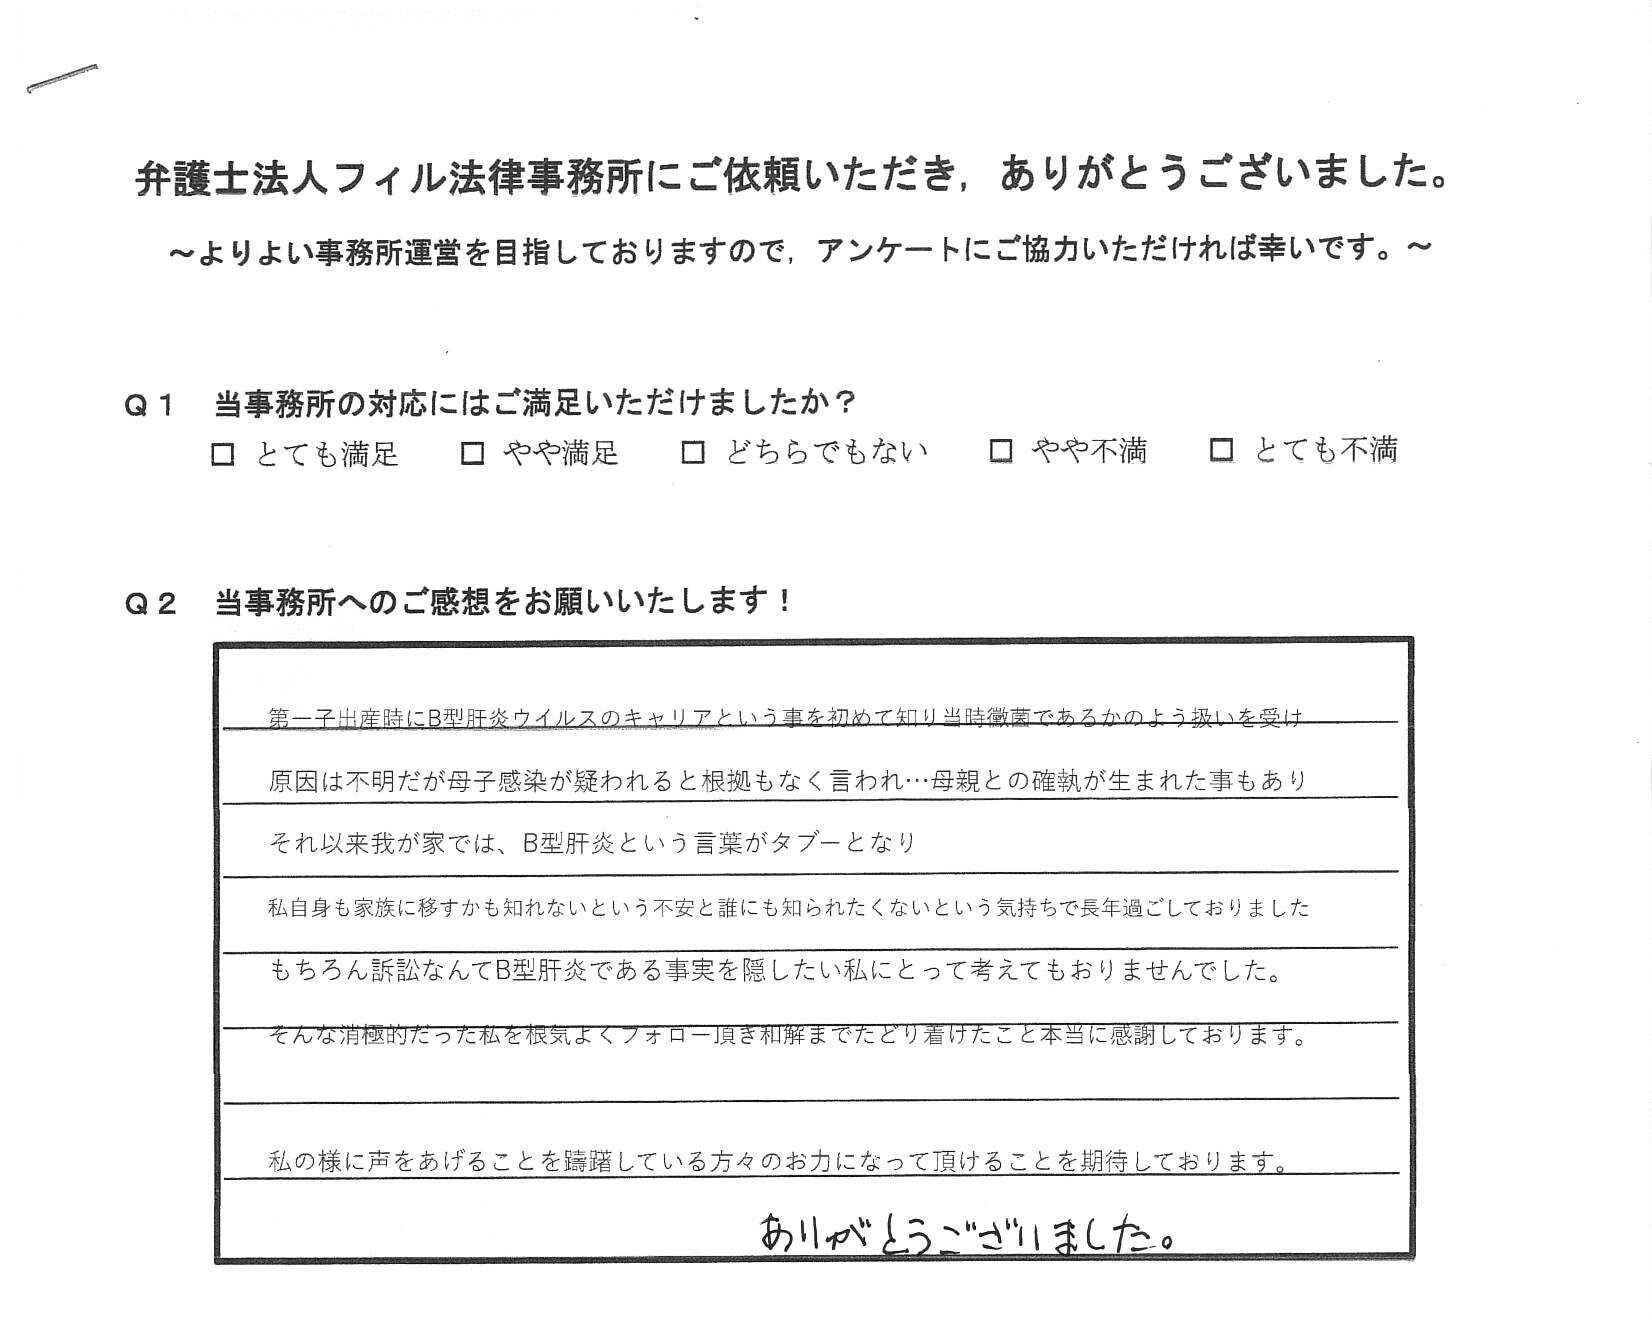 弁護士法人フィル法律事務所にご依頼いただき，ありがとうございました。
～よりよい事務所運営を目指しておりますので，アンケートにご協力いただければ幸いです。～
Ｑ１　当事務所の対応にはご満足いただけましたか？
□ とても満足　□ やや満足　□ どちらでもない　□ やや不満　□ とても不満
Ｑ２　当事務所へのご感想をお願いいたします！
第一子出産時にB型肝炎ウイルスのキャリアという事を初めて知り当時黴菌であるかのよう扱いを受け
原因は不明だが母子感染が疑われると根拠もなく言われ…母親との確執が生まれた事もあり
それ以来我が家では、B型肝炎という言葉がタブーとなり
私自身も家族に移すかも知れないという不安と誰にも知られたくないという気持ちで長年過ごしておりました
もちろん訴訟なんてB型肝炎である事実を隠したい私にとって考えてもおりませんでした。
そんな消極的だった私を根気よくフォロー頂き和解までたどり着けたこと本当に感謝しております。
私の様に声をあげることを躊躇している方々のお力になって頂けることを期待しております。
ありがとうございました。